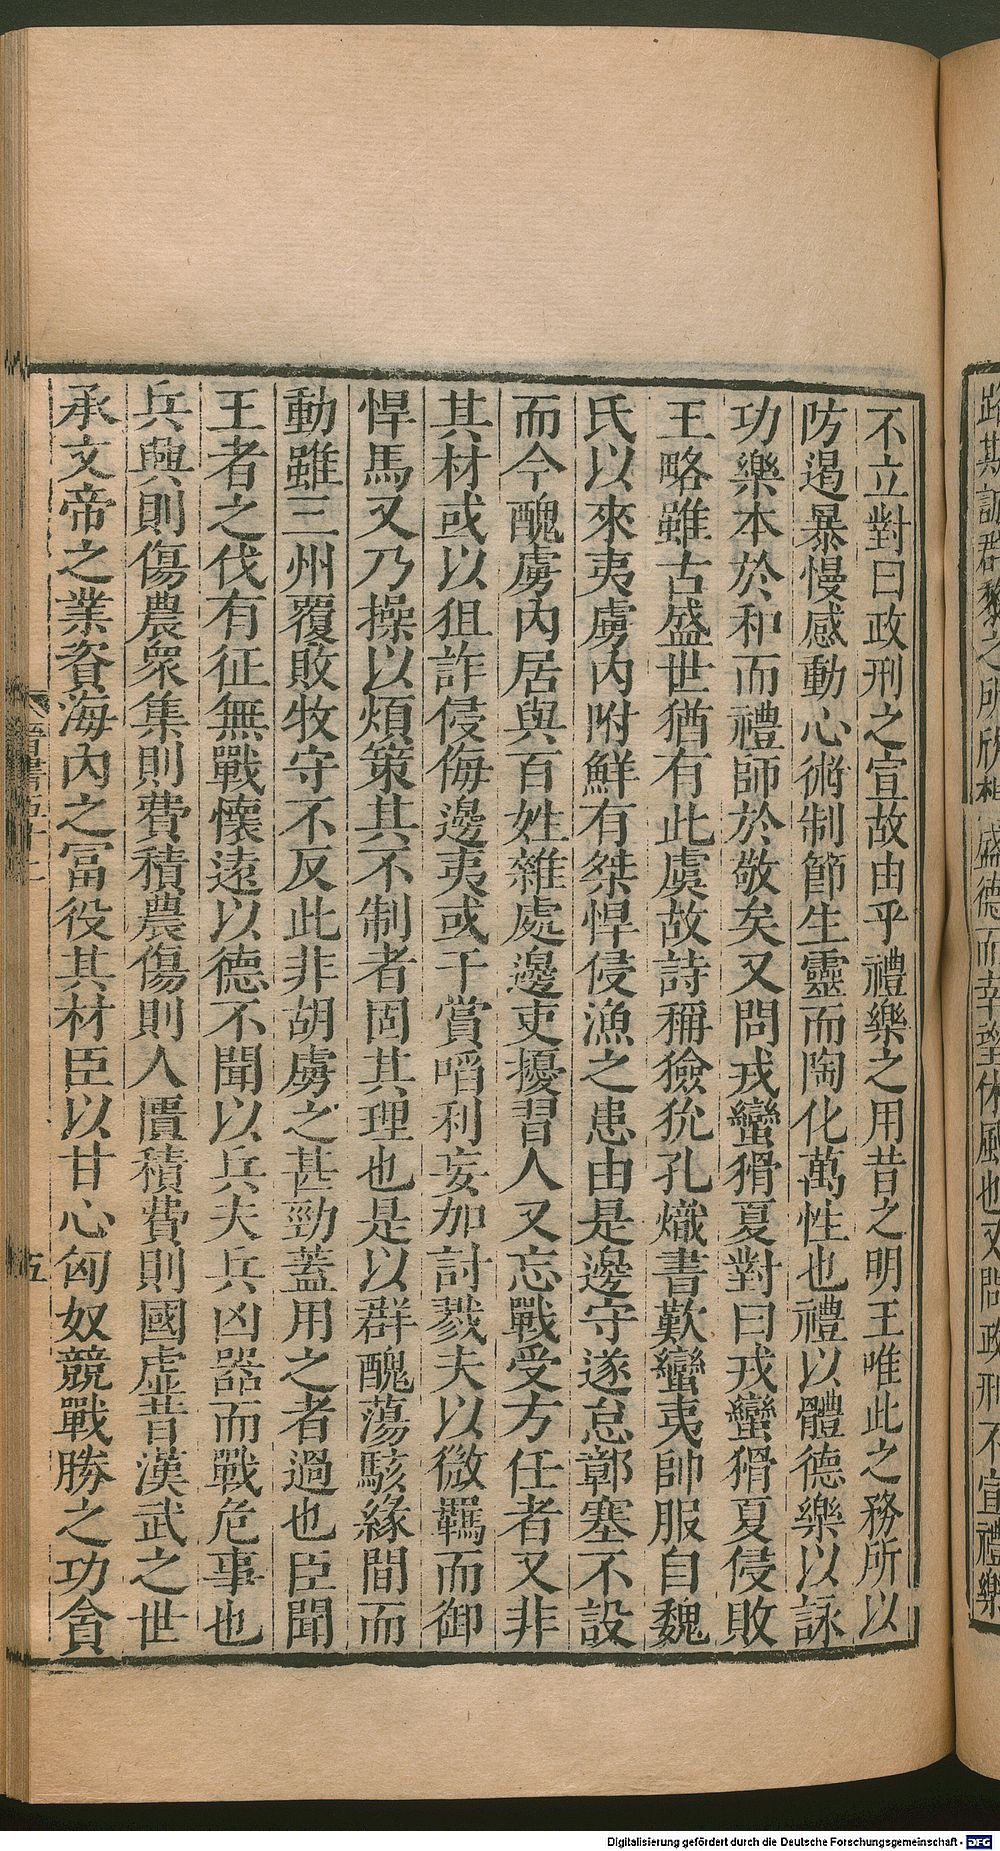 此斯誠群黎之所欣想盛德而幸望休風也又問政刑不宣禮樂
不立對曰政刑之宣故由乎禮樂之用昔之明王唯此之務所以
防遏暴慢感動心術制節生靈而陶化萬性也禮以體德樂以詠
功樂本於和而禮師於敬矣又問戎蠻猾夏對曰戎蠻猾夏侵敗
王略雖古盛世猶有此虞故詩稱獫狁孔熾書歎蠻夷帥服自魏
氏以來夷虜内附鮮有桀悍侵漁之患由是邊守遂怠鄣塞不設
而今醜虜内居與百姓雜處邊吏擾習人又忘戰受方任者又非
其材或以狙詐侵侮邊夷或干賞啗利妄加討戮夫以微羈而御
悍馬又乃操以煩策其不制者固其理也是以群醜蕩駭緣間而
動雖三州覆敗牧守不反此非胡虜之甚勁蓋用之者過也臣聞
王者之伐有征無戰懷遠以德不聞以兵夫兵凶器而戰危事也
兵興則傷農衆集則費積農傷則人匱積費則國虛昔漢武之世
承文帝之業資海内之冨役其材臣以甘心匈奴競戰勝之功貪
五
Digitalisierung gefördert durch die Deutsche Forschungsgemeinschaft - DFG